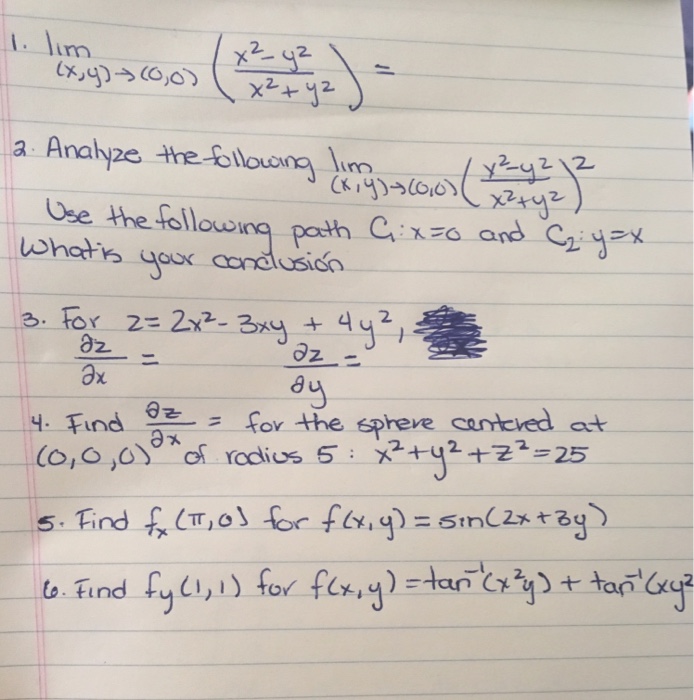 1. lim (x,y)→(0,0) (x²-y² / x²+y²) =
2. Analyze the following lim (x,y)→(0,0) (y²-y² / x²+y²)²
Use the following path C₁: x=0 and C₂: y=x
What is your conclusión
3. For z = 2x² - 3xy + 4y²,
∂z/∂x = ∂z/∂y =
4. Find ∂z/∂x = for the sphere centered at
(0,0,0) of radius 5 : x²+y²+z²=25
5. Find fₓ(π,0) for f(x,y) = sin(2x+3y)
6. Find fy(1,1) for f(x,y) = tan⁻¹(x²y) + tan⁻¹(xy²